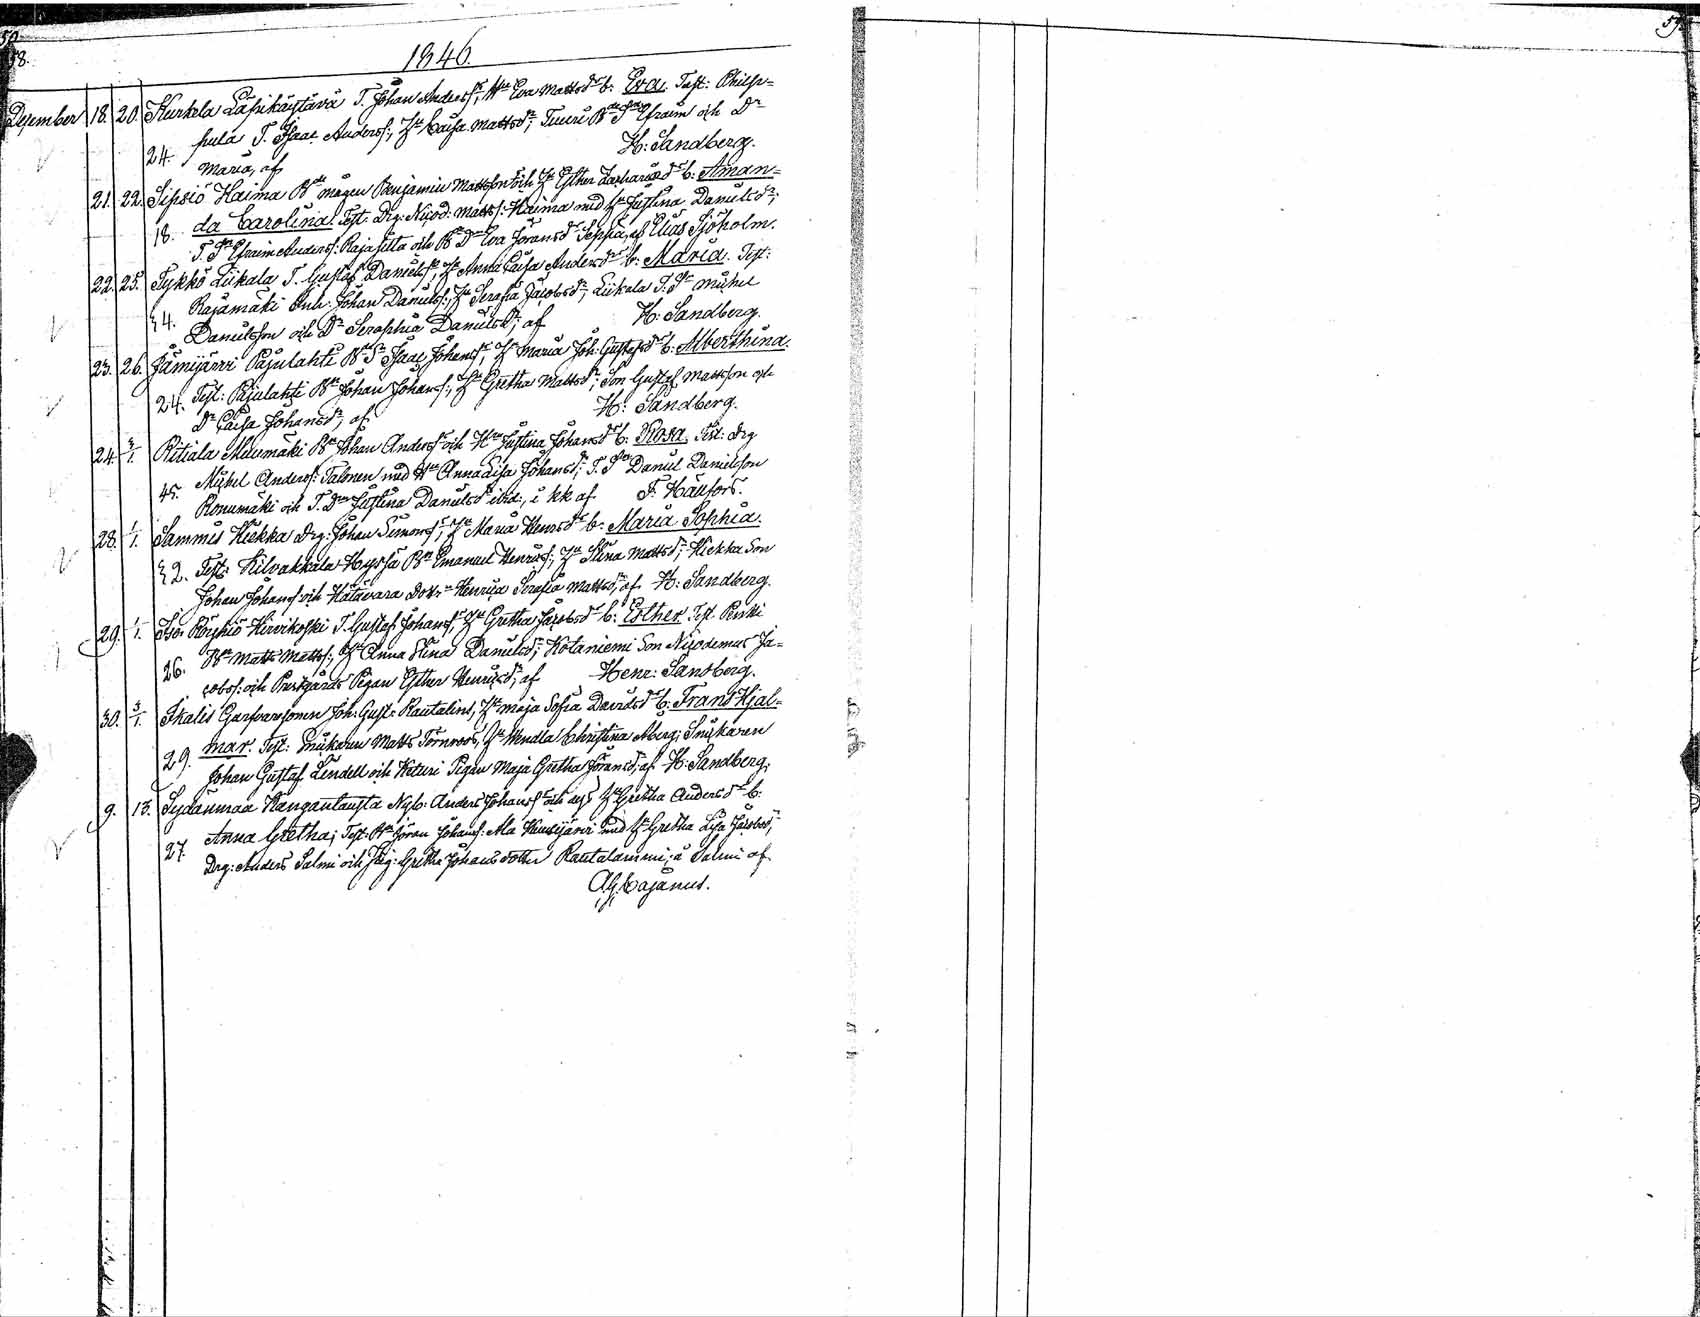 58.
59.
1846.
December 18. 20. Kurkela Lapikäistävä T. Johan Andersſ:, H:u Eva Mattsd:r b: Eva. Test: Philp=
pula T. Isaac Andersſ:, H:u Caisa Mattsd:r, Tuuri B:de S:n Efraim och D:r
24. Maria, af H: Sandberg.
21. 22. Sipsiö Haima B:de mågen Benjamin Mattsson och H:u Esther Zachariæd:r b: Aman=
18. da Carolina. Test. Drg: Nicod: Mattsſ: Haima med H:u Justina Danielsd:r;
T. S:n Efraim Andersſ: Rajasilta och B:de D:r Eva Jöransd:r Seppä, af Elias Sjöholm.
22. 25. Tykkö Liikala T. Gustaf Danielsſ:, H:u Anna Caisa Andersd:r b: Maria. Test:
Rajamäki Inh: Johan Danielsſ:, H:u Serafia Jacobsd:r, Liikala T. S:n Michel
24. Danielsson och D:r Seraphia Danielsd:r, af H: Sandberg.
23. 26. Jämijärvi Pajulahti B:de S:n Isaac Johansſ:, H:u Maria Joh: Gustafsd:r b: Alberthina.
24. Test: Pajulahti B:de Johan Johansſ:, H:u Gretha Mattsd:r; Son Gustaf Mattsson och
D:r Caisa Johansd:r, af H: Sandberg.
24. 3/1. Ritiala Meumäki B:de Johan Andersſ: och H:u Justina Johansd:r b: Rosa. Test: Drg
45. Michel Andersſ: Talonen med H:u Anna Lisa Johansd:r; T. S:n Daniel Danielsson
Konumäki och T. D:r Justina Danielsd:r ibid:, i kk af F. Häufors.
28. 1/1. Sammis Kiekka Drg: Johan Simonsſ:, H:u Maria Henrsd:r b: Maria Sophia.
32. Test: Kilvakkala Hyssä B:de Emanuel Henricsſ:, H:u Stina Mattsd:r; Kiekka Son
Johan Johansſ: och Hatavara Dott:r Henrica Serafia Mattsd:r, af H: Sandberg.
29. 1/1. Iso Röyhiö Hirvikoski T. Gustaf Johansſ:, H:u Gretha Jacobsd:r b: Esther. Test. Pentti
26. B:de Matts Mattsſ:, H:u Anna Stina Danielsd:r; Kotaniemi Son Nicodemus Ja=
cobsſ: och Prestgårds Pigan Esther Henricsd:r, af Henr: Sandberg.
30. 3/1. Ikalis Garfvaregården Joh: Gust: Rautalin, H:u Maja Sofia Davidsd:r b: Frans Hjal=
29. mar. Test: Snickaren Matts Törnroos, H:u Wendla Christina Åberg; Snickaren
Johan Gustaf Lindell och Keturi Pigan Maja Gretha Jöransd:r, af H: Sandberg.
9. 13. Sydänmaa Kangantausta Nyb: Anders Johansſ: och dess H:u Gretha Andersd:r b:
27. Anna Gretha; Test: B:de Jöran Johansſ: Ala Kuusijärvi med H:u Gretha Lisa Jacobsd:r,
Drg: Anders Salmi och Pig: Gretha Johansdotter Rautalammi, i Salmi af
A. G. Cajanus.